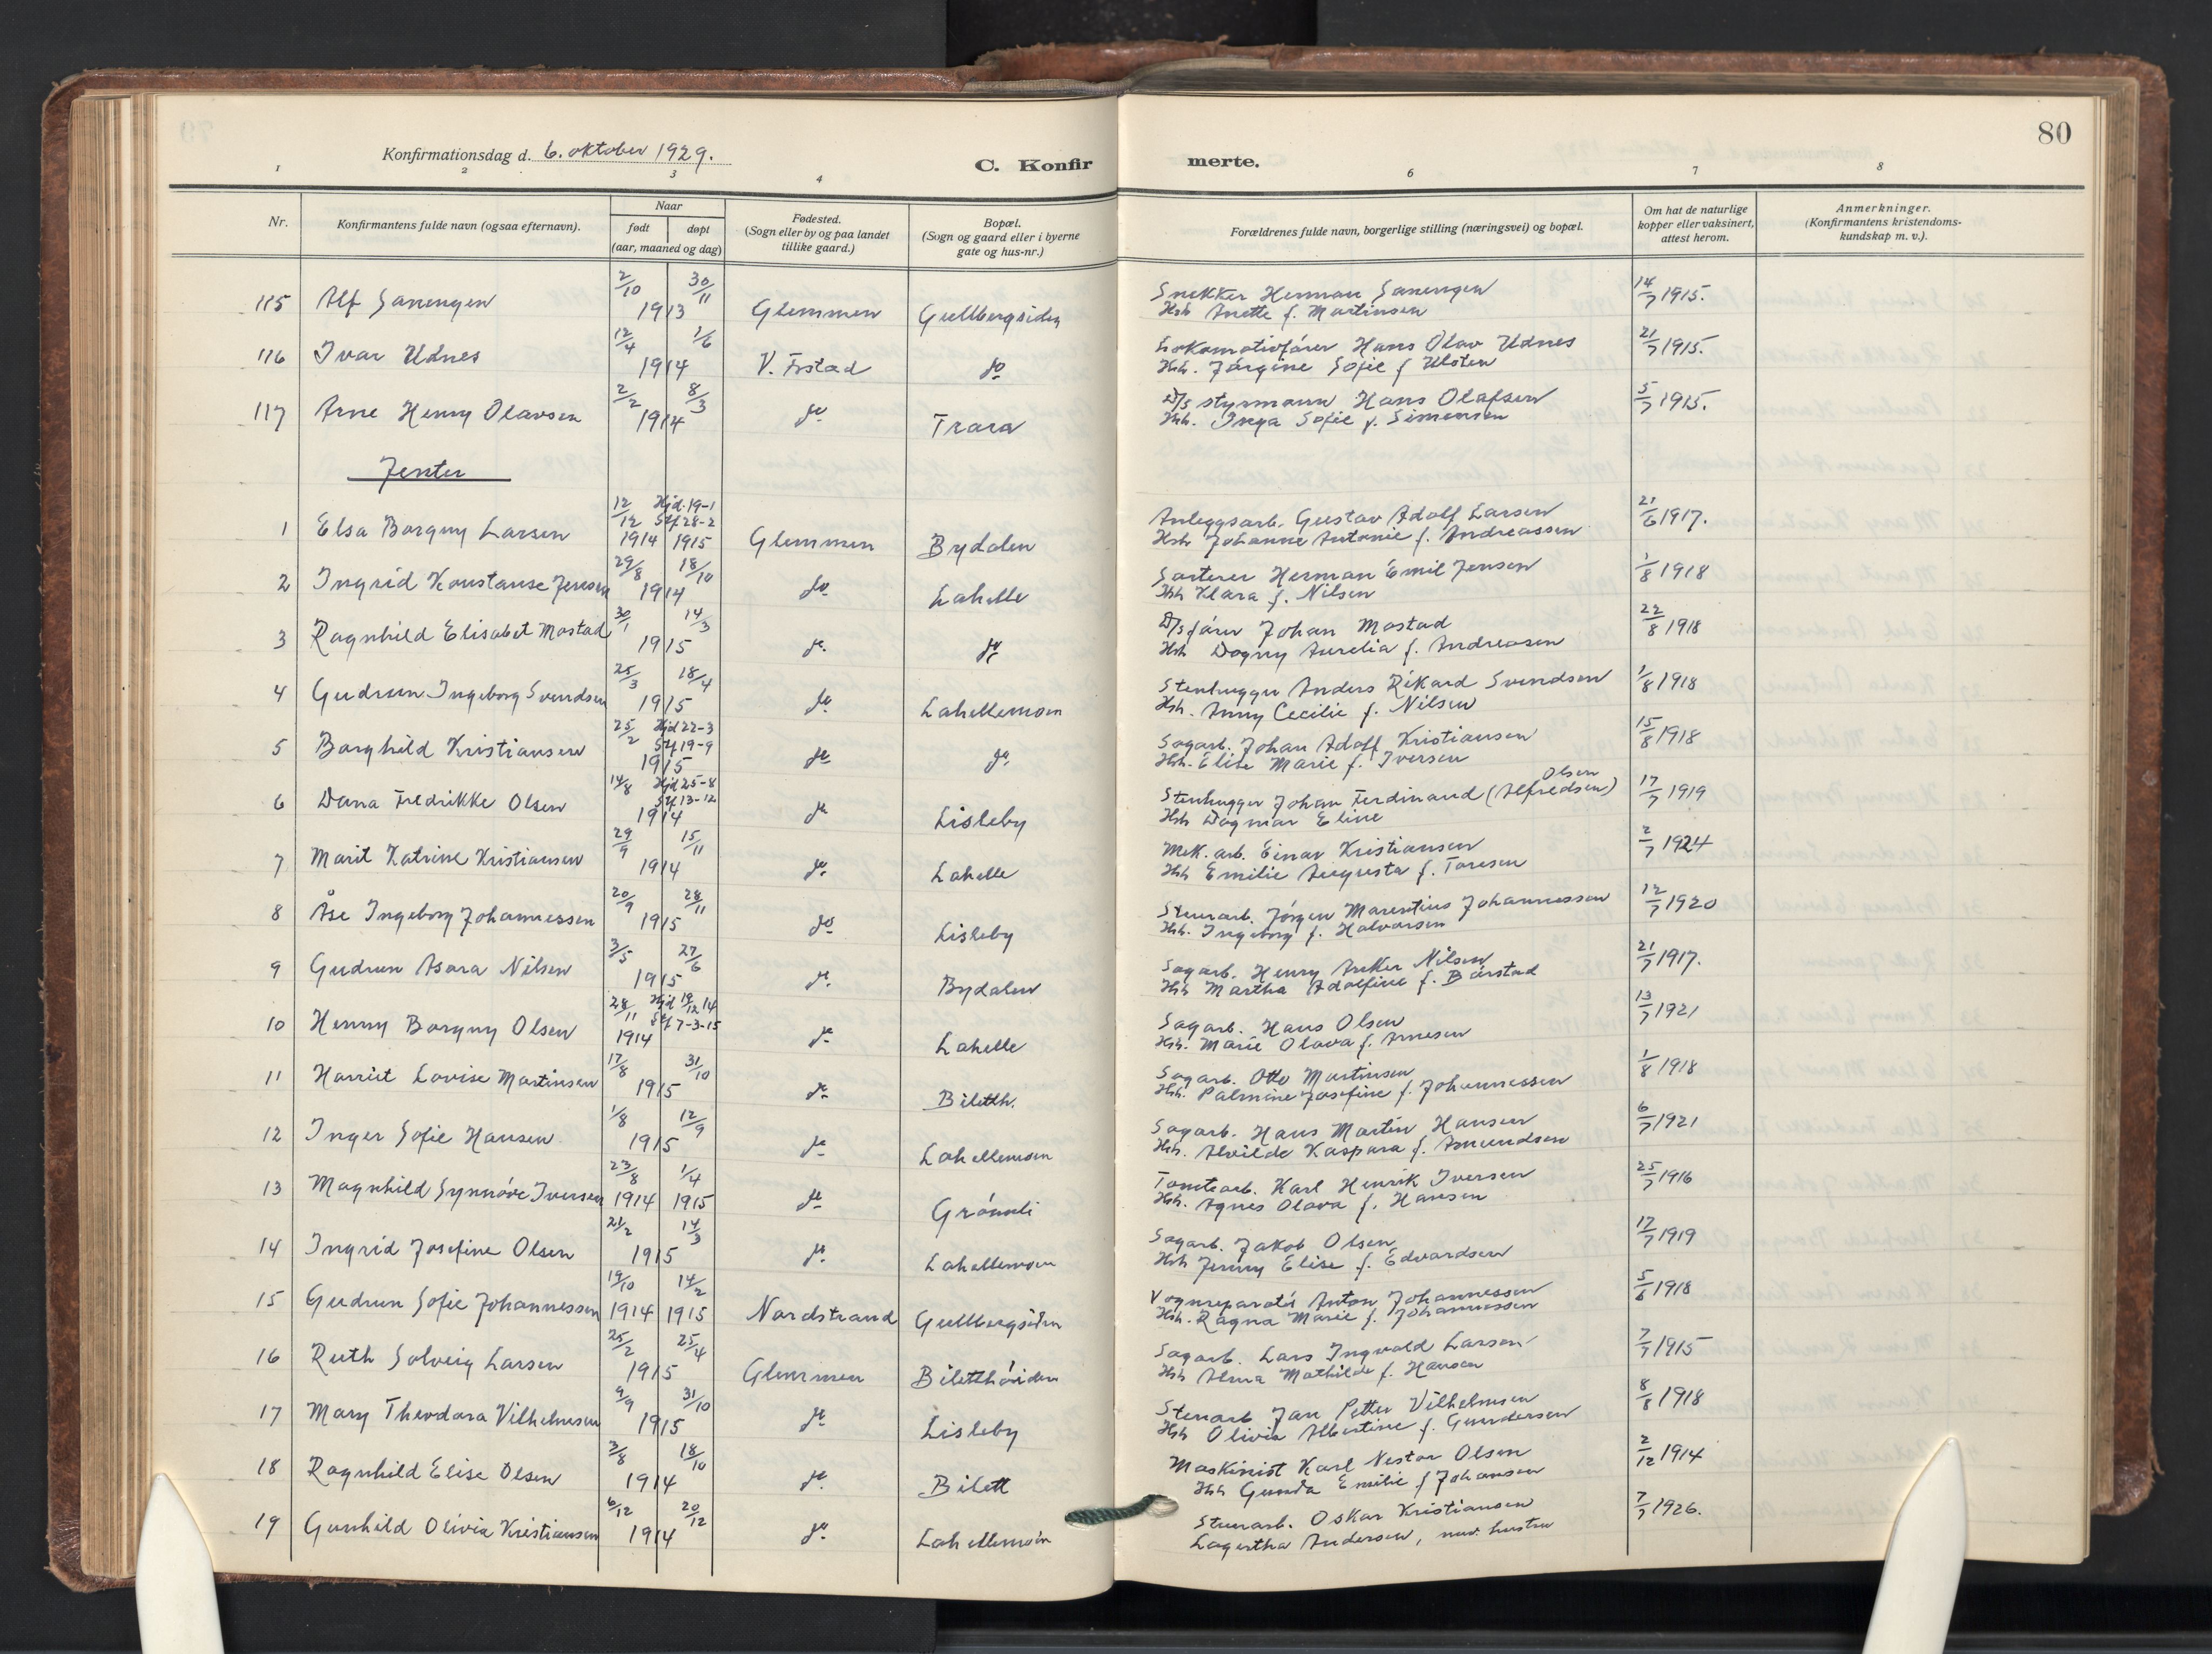 80
Konfirmationsdag d. 6. oktober 1929.
C. Konfir merte.
1 2 3 4 6 7 8
Nr.
Konfirmantens fulde navn (ogsaa efternavn).
Naar
født døpt
(aar, maaned og dag)
Fødested.
(Sogn eller by og paa landet
tillike gaard.)
Bopæl.
(Sogn og gaard eller i byerne
gate og hus-nr.)
Forældrenes fulde navn, borgerlige stilling (næringsvei) og bopæl.
Om hat de naturlige
kopper eller vaksinert,
attest herom.
Anmerkninger.
(Konfirmantens kristendoms-
kundskap m. v.).
115 Alf Sanengen 2/10 30/11 1913 Glemmen Gullbergsiden Snekker Herman Sanengen 14/7 1915.
Hsh Anette f. Martinsen
116 Ivar Udnes 12/4 1/6 1914 V. Frstad do Lokomotivfører Hans Olav Udnes 21/7 1915.
Hsh. Jørgine Sofie f Ulsten
117 Arne Henry Olavsen 2/2 8/3 1914 do Trara D/S styrmann Hans Olafsen 5/7 1915.
Hsh. Inga Sofie f. Simensen
Jenter
1 Elsa Borgny Larsen 12/12 1914 Hjd. 19-1 Stf 28-2 1915 Glemmen Bydalen Anleggsarb. Gustav Adolf Larsen 21/6 1917.
Hsh Johanne Antonie f. Andreassen
2 Ingrid Konstanse Jensen 29/8 18/10 1914 do Lahelle Sorterer Herman Emil Jensen 1/8 1918
Hsh Klara f. Nilsen
3 Ragnhild Elisabet Mostad 30/1 14/3 1915 do do D/S fører Johan Mostad 22/8 1918
Hsh Dagny Aurelia f. Andreasen
4 Gudrun Ingeborg Svendsen 25/3 18/4 1915 do Lahellemoen Stenhugger Anders Rikard Svendsen 1/8 1918
Hsh. Anny Cecilie f. Nilsen
5 Borghild Kristiansen 25/2 Hjd 22-3 Stf 19-9 1915 do do Sagarb. Johan Adolf Kristiansen 15/8 1918
Hsh. Elise Marie f. Iversen
6 Dana Fredrikke Olsen 14/8 Hjd 25-8 Stf 13-12 1914 do Lisleby Stenhugger Johan Ferdinand (Alfredsen) Olsen 17/7 1919
Hsh Dagmar Eline
7 Marit Katrine Kristiansen 29/9 15/11 1914 do Lahelle Mek. arb. Einar Kristiansen 2/7 1924
Hsh Emilie Augusta f. Toresen
8 Åse Ingeborg Johannessen 20/9 28/11 1915 do Lisleby Stenarb. Jørgen Marentius Johannessen 12/7 1920
Hsh. Ingeborg f. Halvorsen
9 Gudrun Asora Nilsen 3/5 27/6 1915 do Bydalen Sagarb. Henry Anker Nilsen 21/7 1917.
Hsh Martha Adolfine f. Bårstad
10 Henny Borgny Olsen 28/11 1914 Hjd 19/12 14 Stf 7-3-15 do Lahelle Sagarb. Hans Olsen 13/7 1921
Hsh. Marie Olava f. Arnesen
11 Harriet Lovise Martinsen 17/8 31/10 1915 do Biletth. Sagarb. Otto Martinsen 1/8 1918
Hsh. Palmine Josefine f. Johannessen
12 Inger Sofie Hansen 1/8 12/9 1915 do Lahellemoen Sagarb. Hans Martin Hansen 6/7 1921
Hsh. Alvilde Kaspara f. Amundsen
13 Magnhild Synnøve Iversen 23/8 1914 1/4 1915 do Grønli Tomtearb. Karl Henrik Iversen 25/7 1916
Hsh. Agnes Olava f. Hansen
14 Ingrid Josefine Olsen 21/2 14/3 1915 do Lahellemoen Sagarb. Jakob Olsen 17/7 1919
Hsh Jenny Elise f. Edvardsen
15 Gudrun Sofie Johannessen 19/10 1914 14/2 1915 Nordstrand Gullbergsiden Vognreparatør Anton Johannessen 5/6 1918
Hsh. Ragna Marie f. Johannessen
16 Ruth Solveig Larsen 25/2 25/4 1915 Glemmen Biletthöiden Sagarb. Lars Ingvald Larsen 7/7 1915
Hsh Alma Mathilde f. Hansen
17 Mary Theodora Vilhelmsen 9/9 31/10 1915 do Lisleby Stenarb Jan Petter Vilhelmsen 8/8 1918
Hsh Olivia Albertine f. Gundersen
18 Ragnhild Elise Olsen 3/8 18/10 1914 do Bilett Maskinist Karl Nestor Olsen 2/12 1914
Hsh Gunda Emilie f Johansen
19 Gunhild Olivia Kristiansen 6/12 20/12 1914 do Lahellemoen Stenarb. Oskar Kristiansen 7/7 1926.
Lagertha Andersen, nuv. hustru